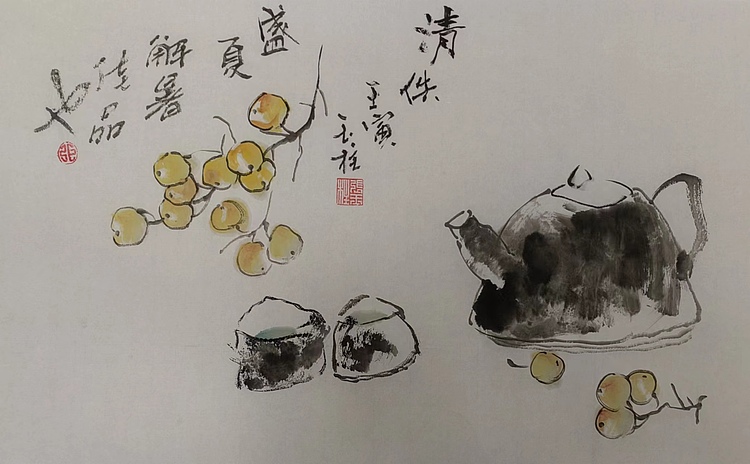 清供
壬寅
玉柱
盛
夏
解暑
品
也